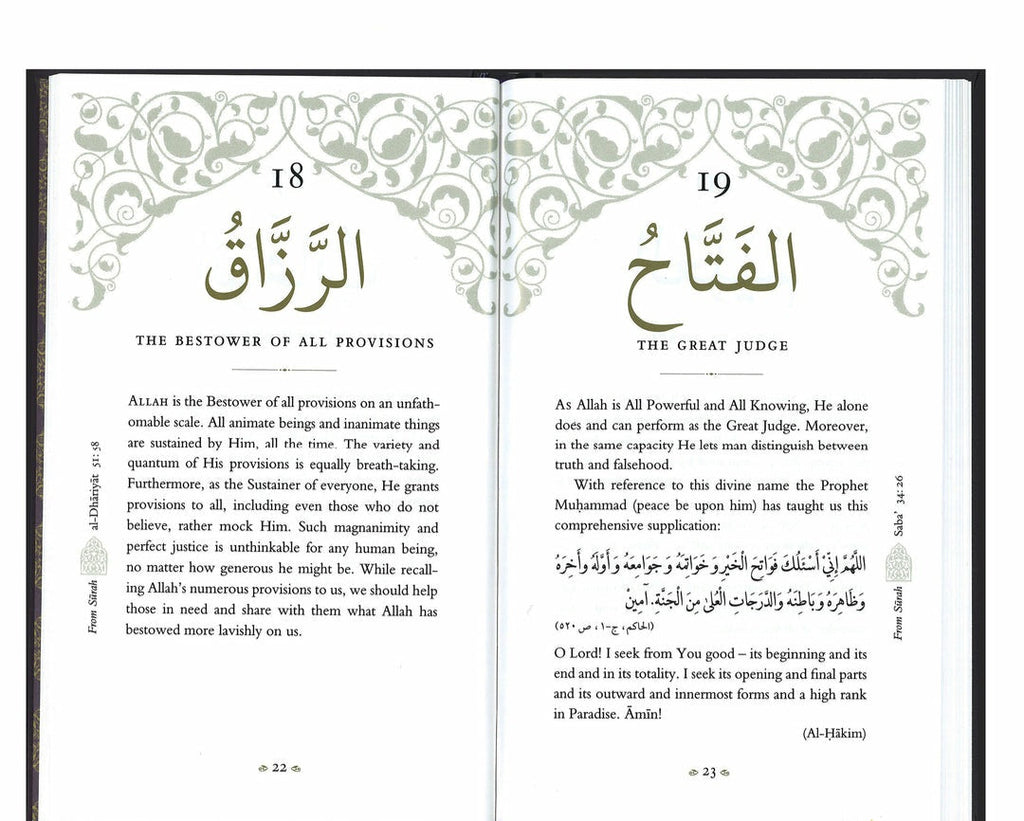 18
الرَّزَّاقُ
THE BESTOWER OF ALL PROVISIONS
ALLAH is the Bestower of all provisions on an unfath-
omable scale. All animate beings and inanimate things
are sustained by Him, all the time. The variety and
quantum of His provisions is equally breath-taking.
Furthermore, as the Sustainer of everyone, He grants
provisions to all, including even those who do not
believe, rather mock Him. Such magnanimity and
perfect justice is unthinkable for any human being,
no matter how generous he might be. While recall-
ing Allah's numerous provisions to us, we should help
those in need and share with them what Allah has
bestowed more lavishly on us.
From Sūrah al-Dhāriyāt 51: 58
22
19
الفَتَّاحُ
THE GREAT JUDGE
As Allah is All Powerful and All Knowing, He alone
does and can perform as the Great Judge. Moreover,
in the same capacity He lets man distinguish between
truth and falsehood.
With reference to this divine name the Prophet
Muḥammad (peace be upon him) has taught us this
comprehensive supplication:
اللَّهُمَّ إِنِّيْ أَسْتَلُكَ فَوَاتِحَ الْخَيْرِ وَ خَوَاتِمَهُ وَ جَوَامِعَهُ وَ أَوَّلَهُ وَأخِرَهُ
وَظَاهِرَهُ وَ بَاطِنَهُ وَالدَّرَجَاتِ الْعُلىٰ مِنَ الْجَنَّةِ. آمِيْنْ
(الحاكم، ج-١، ص ٥٢٠)
O Lord! I seek from You good – its beginning and its
end and in its totality. I seek its opening and final parts
and its outward and innermost forms and a high rank
in Paradise. Āmīn!
(Al-Ḥākim)
From Sūrah Saba' 34: 26
23